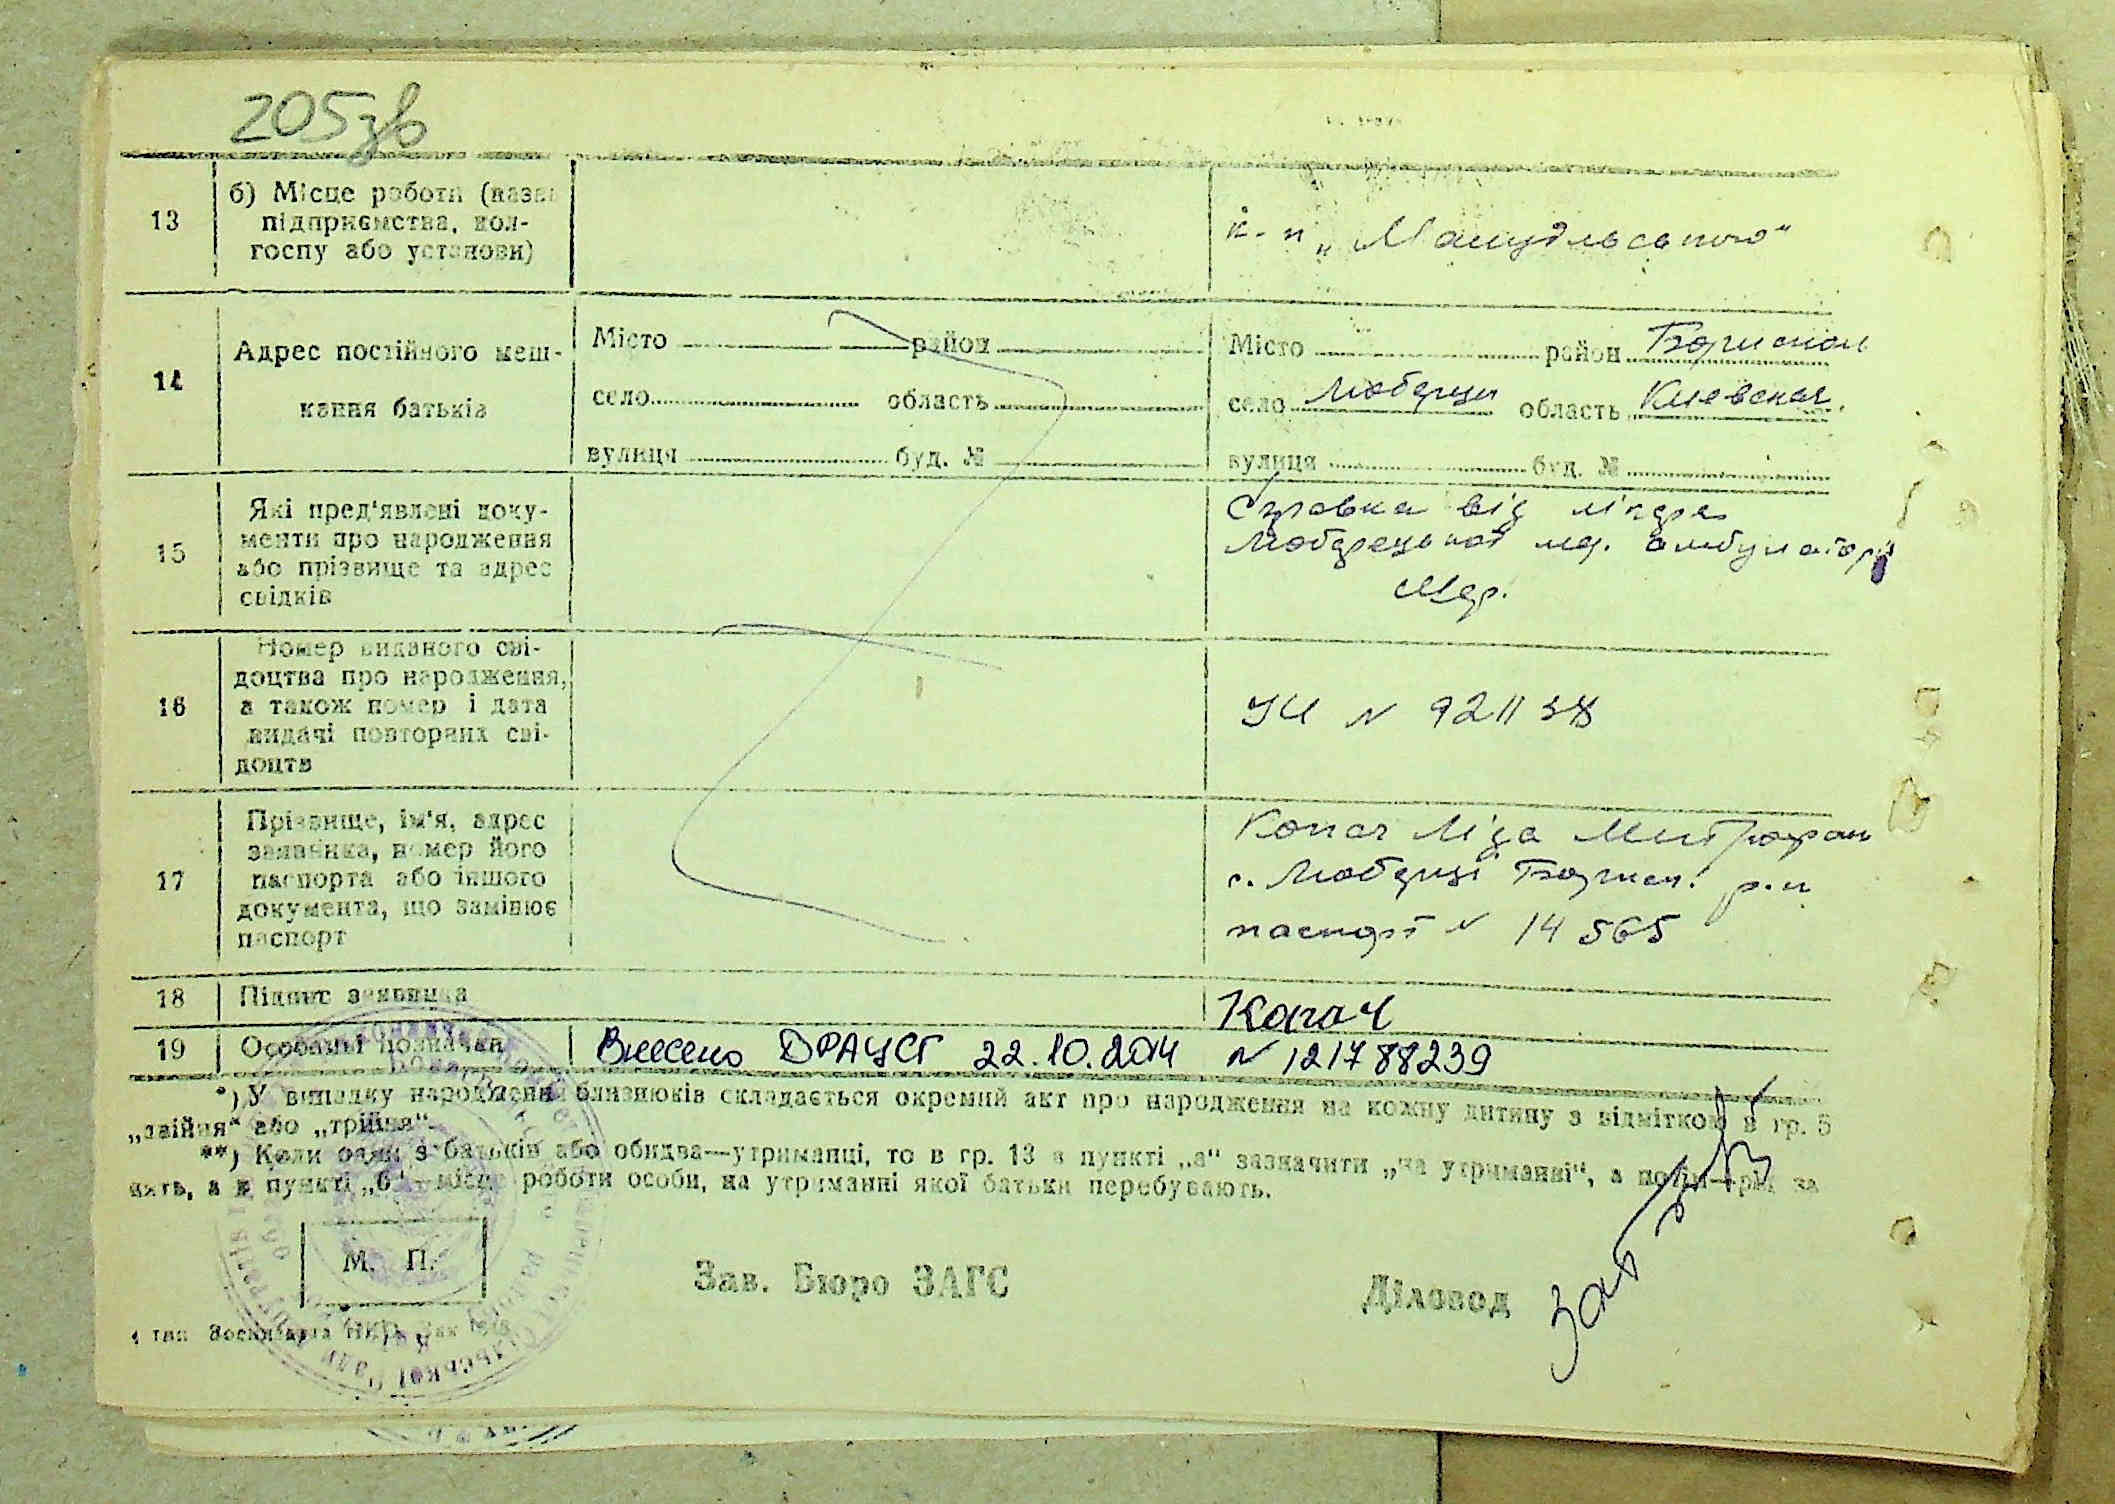 205зв
13
б) Місце роботи (назва
підприємства, кол-
госпу або установи)
к-п „
14
Адрес постійного меш-
кання батьків
Місто район
село область
вулиця буд. №
Місто район Борискол
село Любарци область Киевская
вулиця буд. №
15
Які пред'явлені доку-
менти про народження
або прізвище та адрес
свідків
Справка від
Любарецької амбулаторії
16
Номер виданого сві-
доцтва про народження,
а також номер і дата
видачі повторних сві-
доцтв
УИ N 921138
17
Прізвище, ім'я, адрес
заявника, номер його
паспорта або іншого
документа, що замінює
паспорт
Копач Ліда Митрофан
с. Любарці р-н
паспорт N 14 565
18
Підпис заявника
Копач
19
Особливі позначки
Внесено ДРАЦСГ 22.10.2014 N 121788239
*) У випадку народження близнюків складається окремий акт про народження на кожну дитину з відміткою в гр. 5
„двійня“ або „трійня“.
**) Коли один з батьків або обидва—утриманці, то в гр. 13 в пункті „а“ зазначити „на утриманні“, а
а в пункті „б“ — місце роботи особи, на утриманні якої батьки перебувають.
М. П.
Зав. Бюро ЗАГС
Діловод